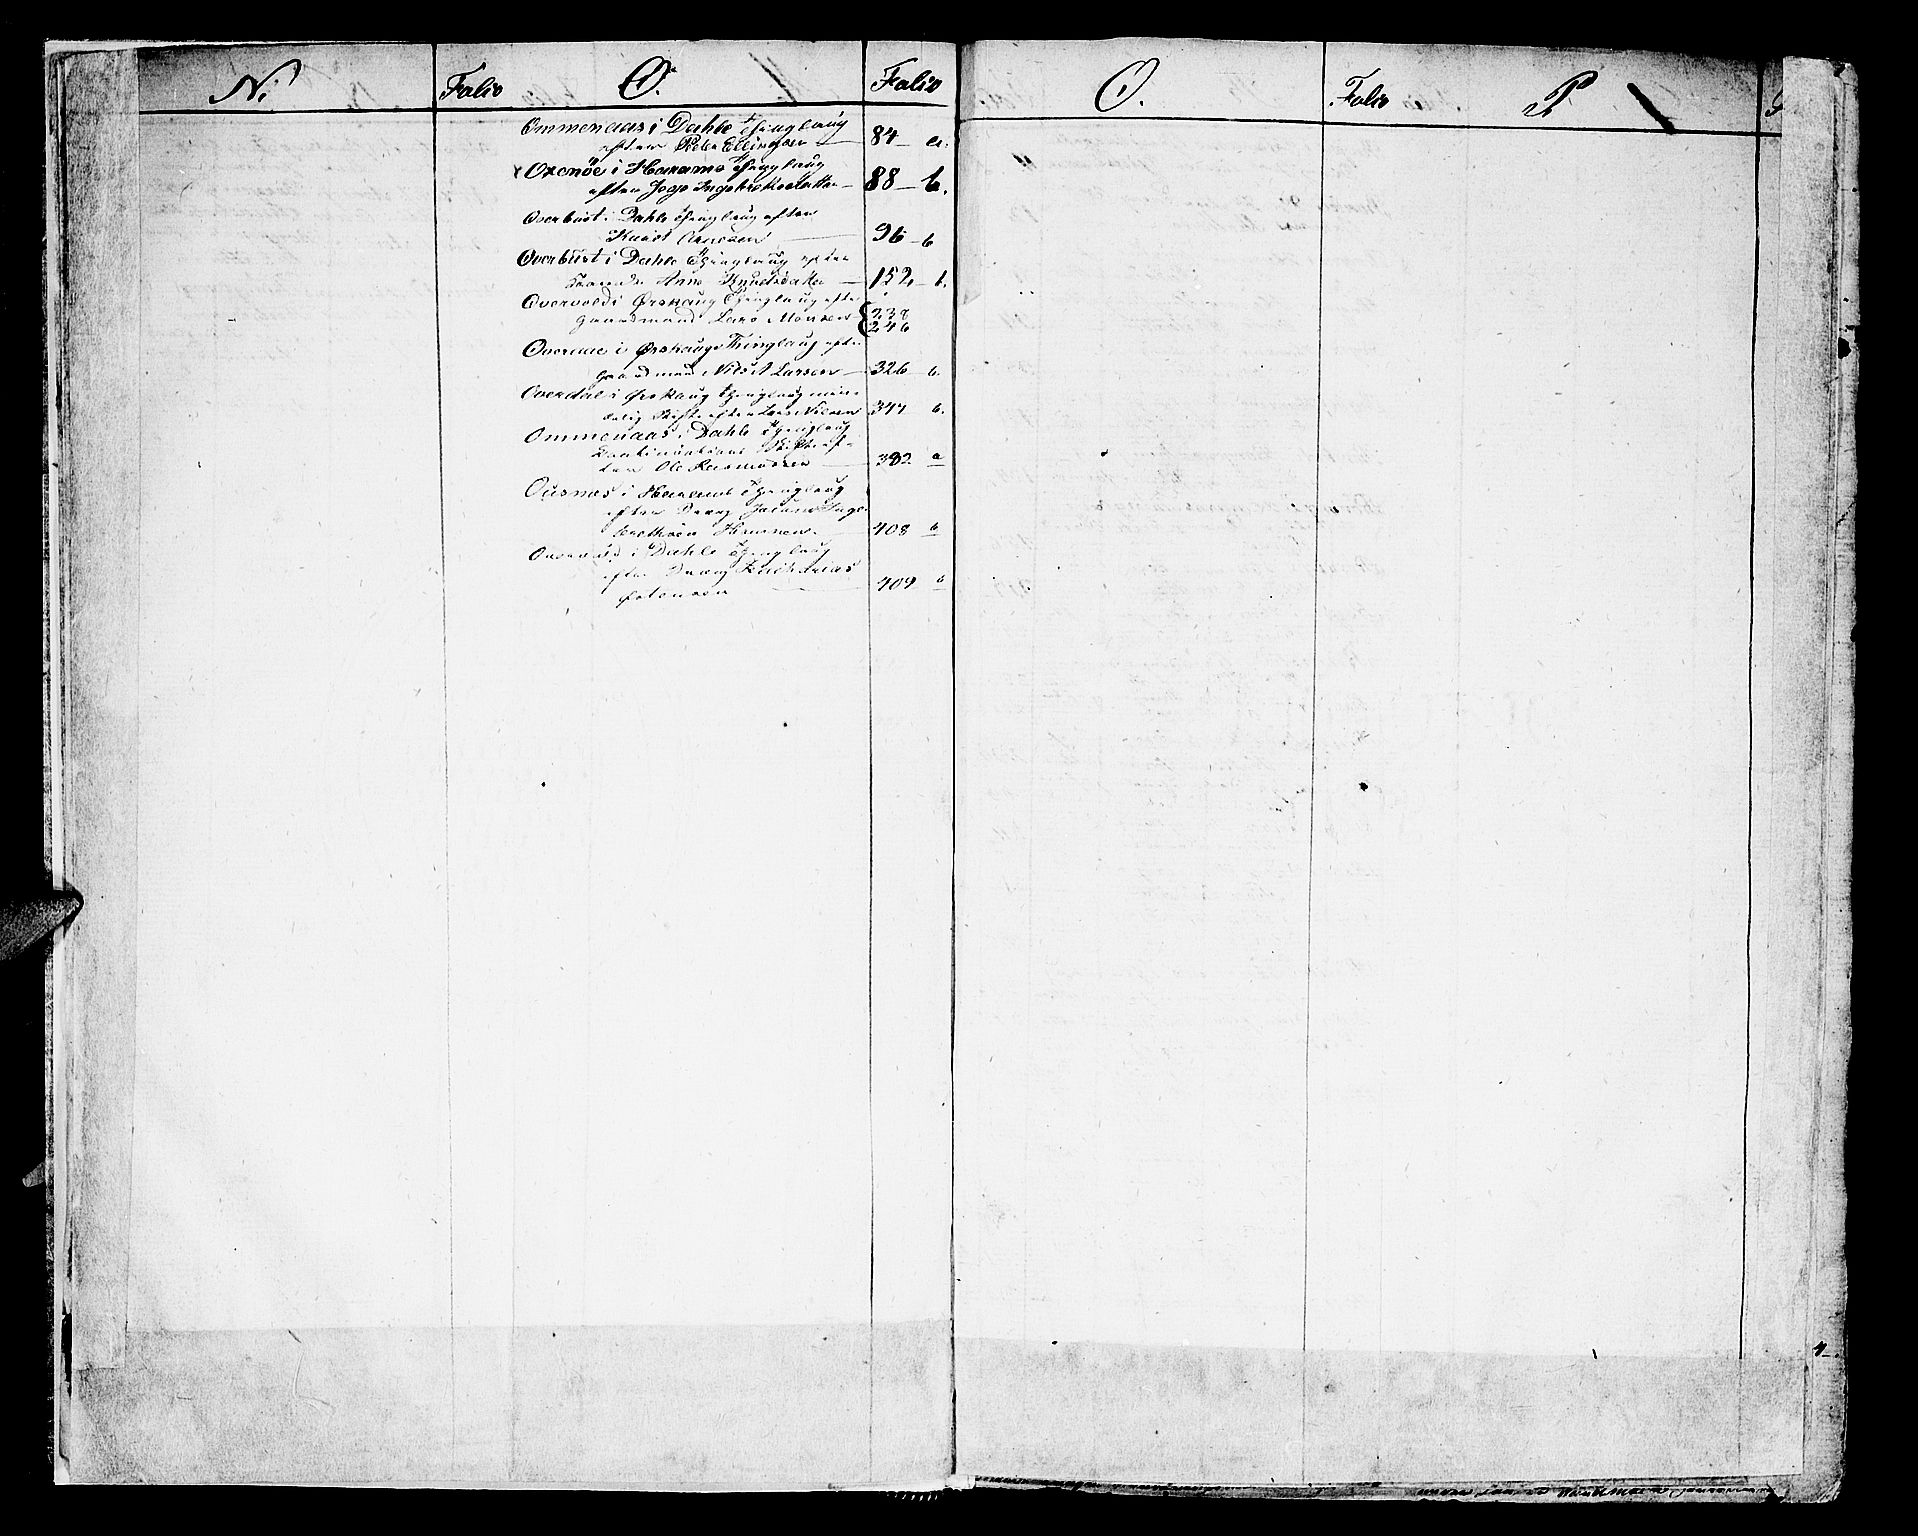 N.
Folio
O.
Folio
Ommenaas i Dahle Thinglaug
efter Peder Ellingsen 84 a.
Oxenöe i Harams Thinglaug
efter Ingebrigtsdatter 88 b.
Overbust i Dahle Thinglaug efter
Knudt Arnesen 96 b
Overbust i Dahle Thinglaug efter
Anne Knudsdatter 152 b.
Overvold i Ørskaug Thinglaug efter
Gaardmand Lars Monsen 238
246
Overaae i Ørskaugs Thinglaug efter
gaardmand Nils A Larsen 326 b.
Overdal i Ørskaug Thinglaug min-
delig Skifte efter Lars Nilsen 347 b.
Ommenaas i Dahle Thinglaug
Continuations Skifte ef-
ter Ole Rasmussen 382 a
Ousnæs i Harams Thinglaug
efter Dreng Inge-
brethsen 408 b
Overvold i Dahle Thinglaug
efter Dreng Zacharias
Østensen 409 b
O.
Folio
P